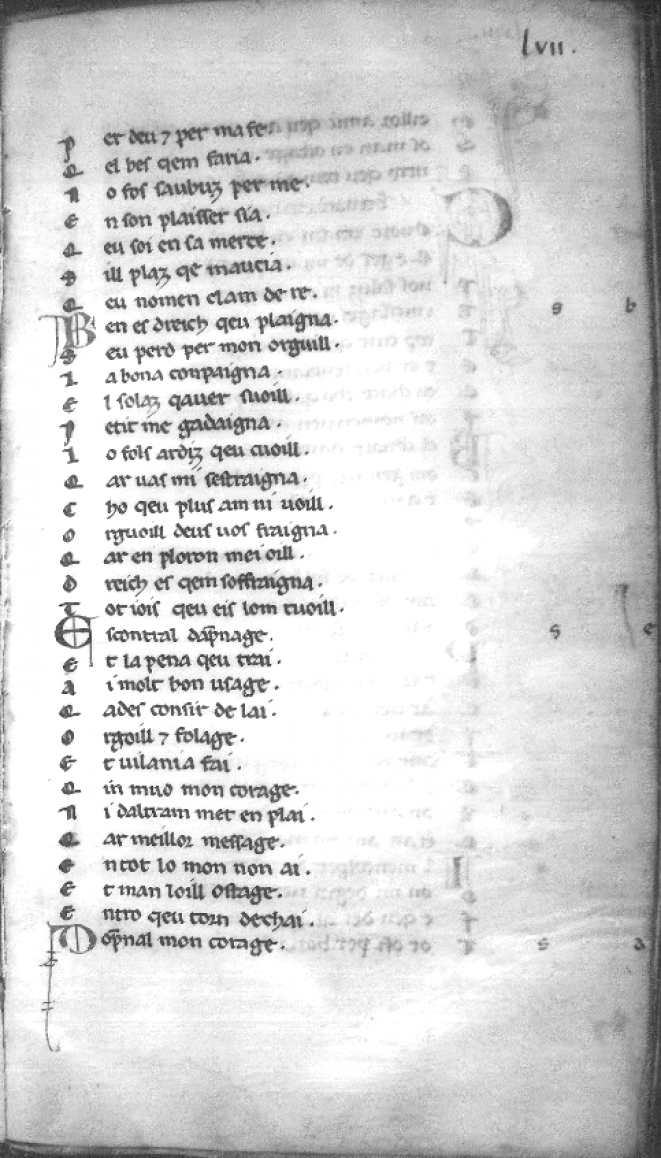 lvii.
P er deu ⁊ per ma fe
Q el bes qem faria.
N o fos saubuz per me.
E n son plaisser sia.
Q eu soi en sa merce.
S ill plaz qe maucia.
Q eu nomen clam de re.
B en es dreich qeu plaigna.
S eu perd per mon orguill.
L a bona conpaigna
E l solaz qauer suoill.
P etit me gadaigna.
L o fols ardiz qeu cuoill.
Q ar uas mi sestraigna.
C ho qeu plus am ni uoill.
O rguoill deus uos fraigna.
Q ar en ploron mei oill.
D reich es qem soffraigna.
T ot iois qeu eis lom tuoill.
E scontral dāpnage.
E t la pena qeu trai.
A i molt bon usage.
Q ades consir de lai.
O rgoill ⁊ folage.
E t uilania fai.
Q in muo mon corage.
N i daltram met en plai.
Q ar meillor message.
E n tot lo mon non ai.
E t man loill ostage.
E ntro qeu torn dechai.
D op̄nal mon corage.
s b
s e
s a